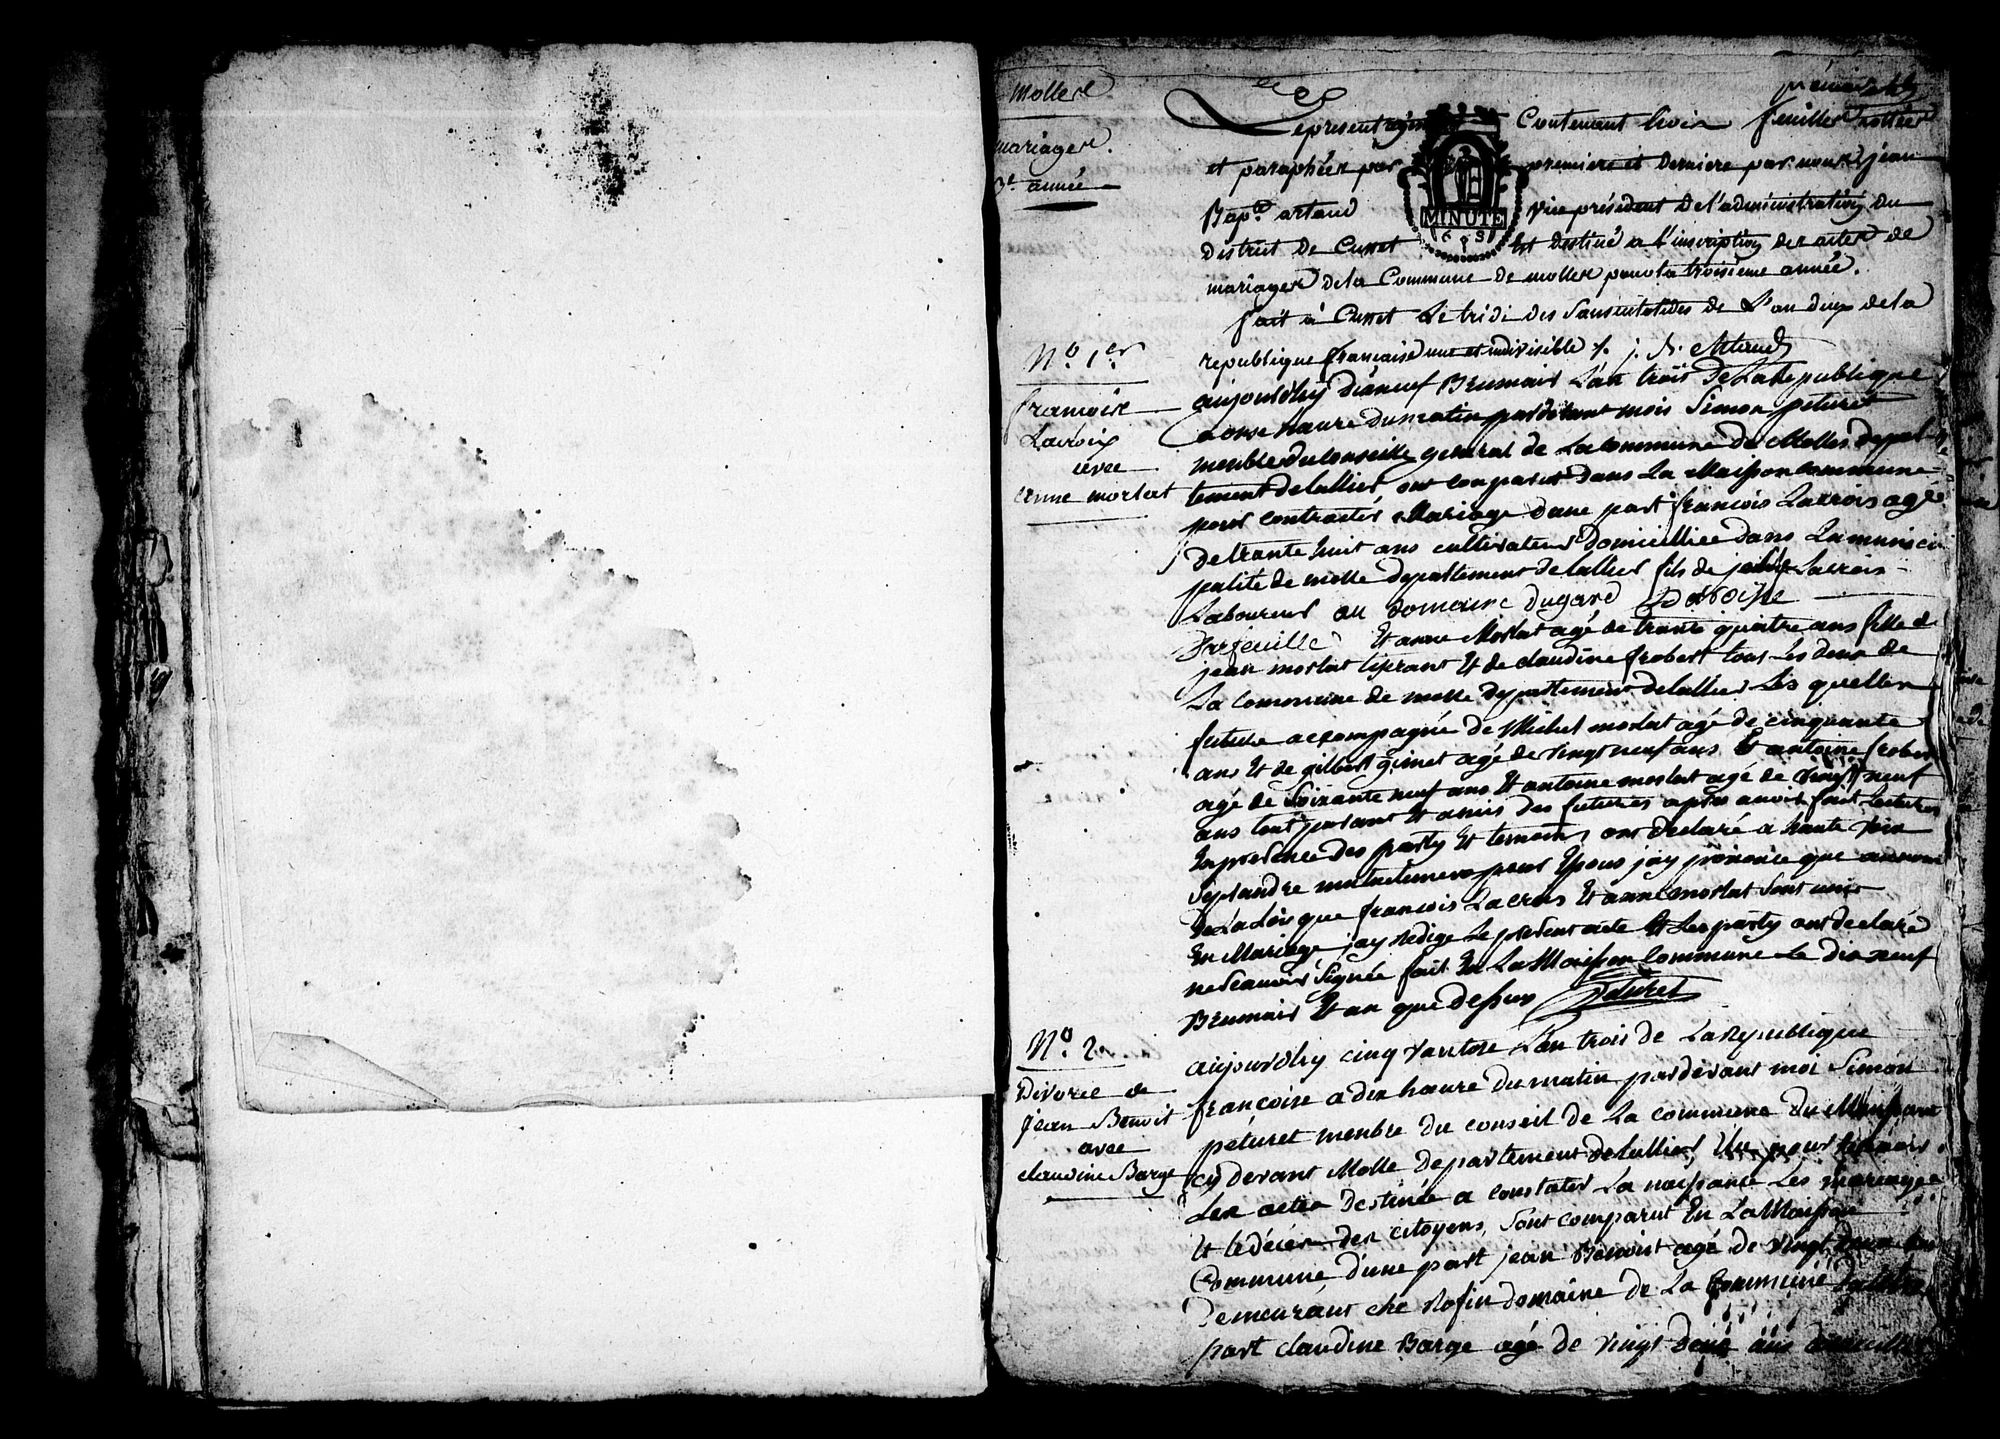 Molles
mariages.
3e année
premier
Le present registre Contenant trois feuilles cottées
et paraphées par premiere et derniere par nous jean
Bap.te artaud vice président de l'administration du
district de Cusset Est destiné a l'inscription des actes de
mariages de la Commune de molles pour la troisième année.
fait à Cusset Le tridi des Sansculotides de L'an deux de la
republique française une et indivisible /. j. B. Artaud
MINUTE
N.o 1.er
françoise
Lacroix
avec
Anne morlat
aujourdhy dix neuf Brumair L'an trois de La Republique
a onse haure du matin pardevant mois Simon péturet
menbre du Conseille general de La commune de Molles depar
tement de lallier ont conparut dans La Maison commune
pour contracter Mariage dune part françois Lacrois agé
de trante huit ans cultivateur domicilliée dans La munici
palité de molle departement de lallier fils de Lacrois
Laboureur au domaine Dugard Paroisse
Darfeuille Et anne Morlat agé de trante quatre ans fille de
jean morlat tixerant Et de claudine frobert tous Les deux de
La commune de molle departement de lallier Les quelles
future accompagnée de Michel morlat agé de cinquante
ans Et de gilbert gimet agé de vingt neuf ans Et antoine frobert
agé de Soixante neuf ans Et antoine morlat agé de vingt neuf
ans tout parant Et amis des futures apres avoir fait Lecture
En presence des party Et temoins ont declaré a haute voix
Se prandre mutuelement pour Epous jay prononcé que au nom
de La Loi que françois Lacrois Et anne morlat Sont unis
En Mariage jay redige Le present acte Et Les party ont declaré
ne Scavoir Signée fait En La Maison Commune Le dix neuf
Brumair Et an que dessus Péturet
N.o 2.
Divorce de
jean Benoit
avec
claudine Barge
aujourdhy cinq vantose L'an trois de La Republique
françoise a dix haure du matin pardevant moi Simon
péturet menbre du conseil de La commune du
cy devant Molle departement de lallier, Elu pour
Les actes destinée a constater La naissance Les mariages
Et le décès des citoyens, Sont comparut En La Maison
Commune d'une part jean Benoist agé de vingt deux ans
Demeurant che Rofin domaine de La Commune
part claudine Barge agé de vingt deux ans